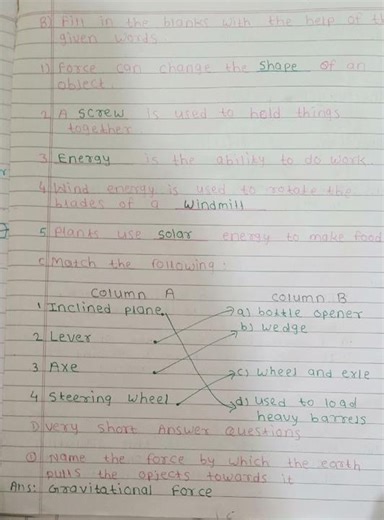 B) Fill in the blanks with the help of th
given words.
1) Force can change the shape of an
object.
2. A screw is used to hold things
together.
3. Energy is the ability to do work.
4. Wind energy is used to rotate the
blades of a Windmill
5. Plants use solar energy to make food
C. Match the following:
Column A Column B
1. Inclined plane a) bottle opener
b) wedge
2 Lever
3 Axe
c) Wheel and exle
4 Steering wheel d) used to load
heavy barrels
D) Very short Answer Questions
① Name the force by which the earth
pulls the opjects towards it
Ans: Gravitational Force